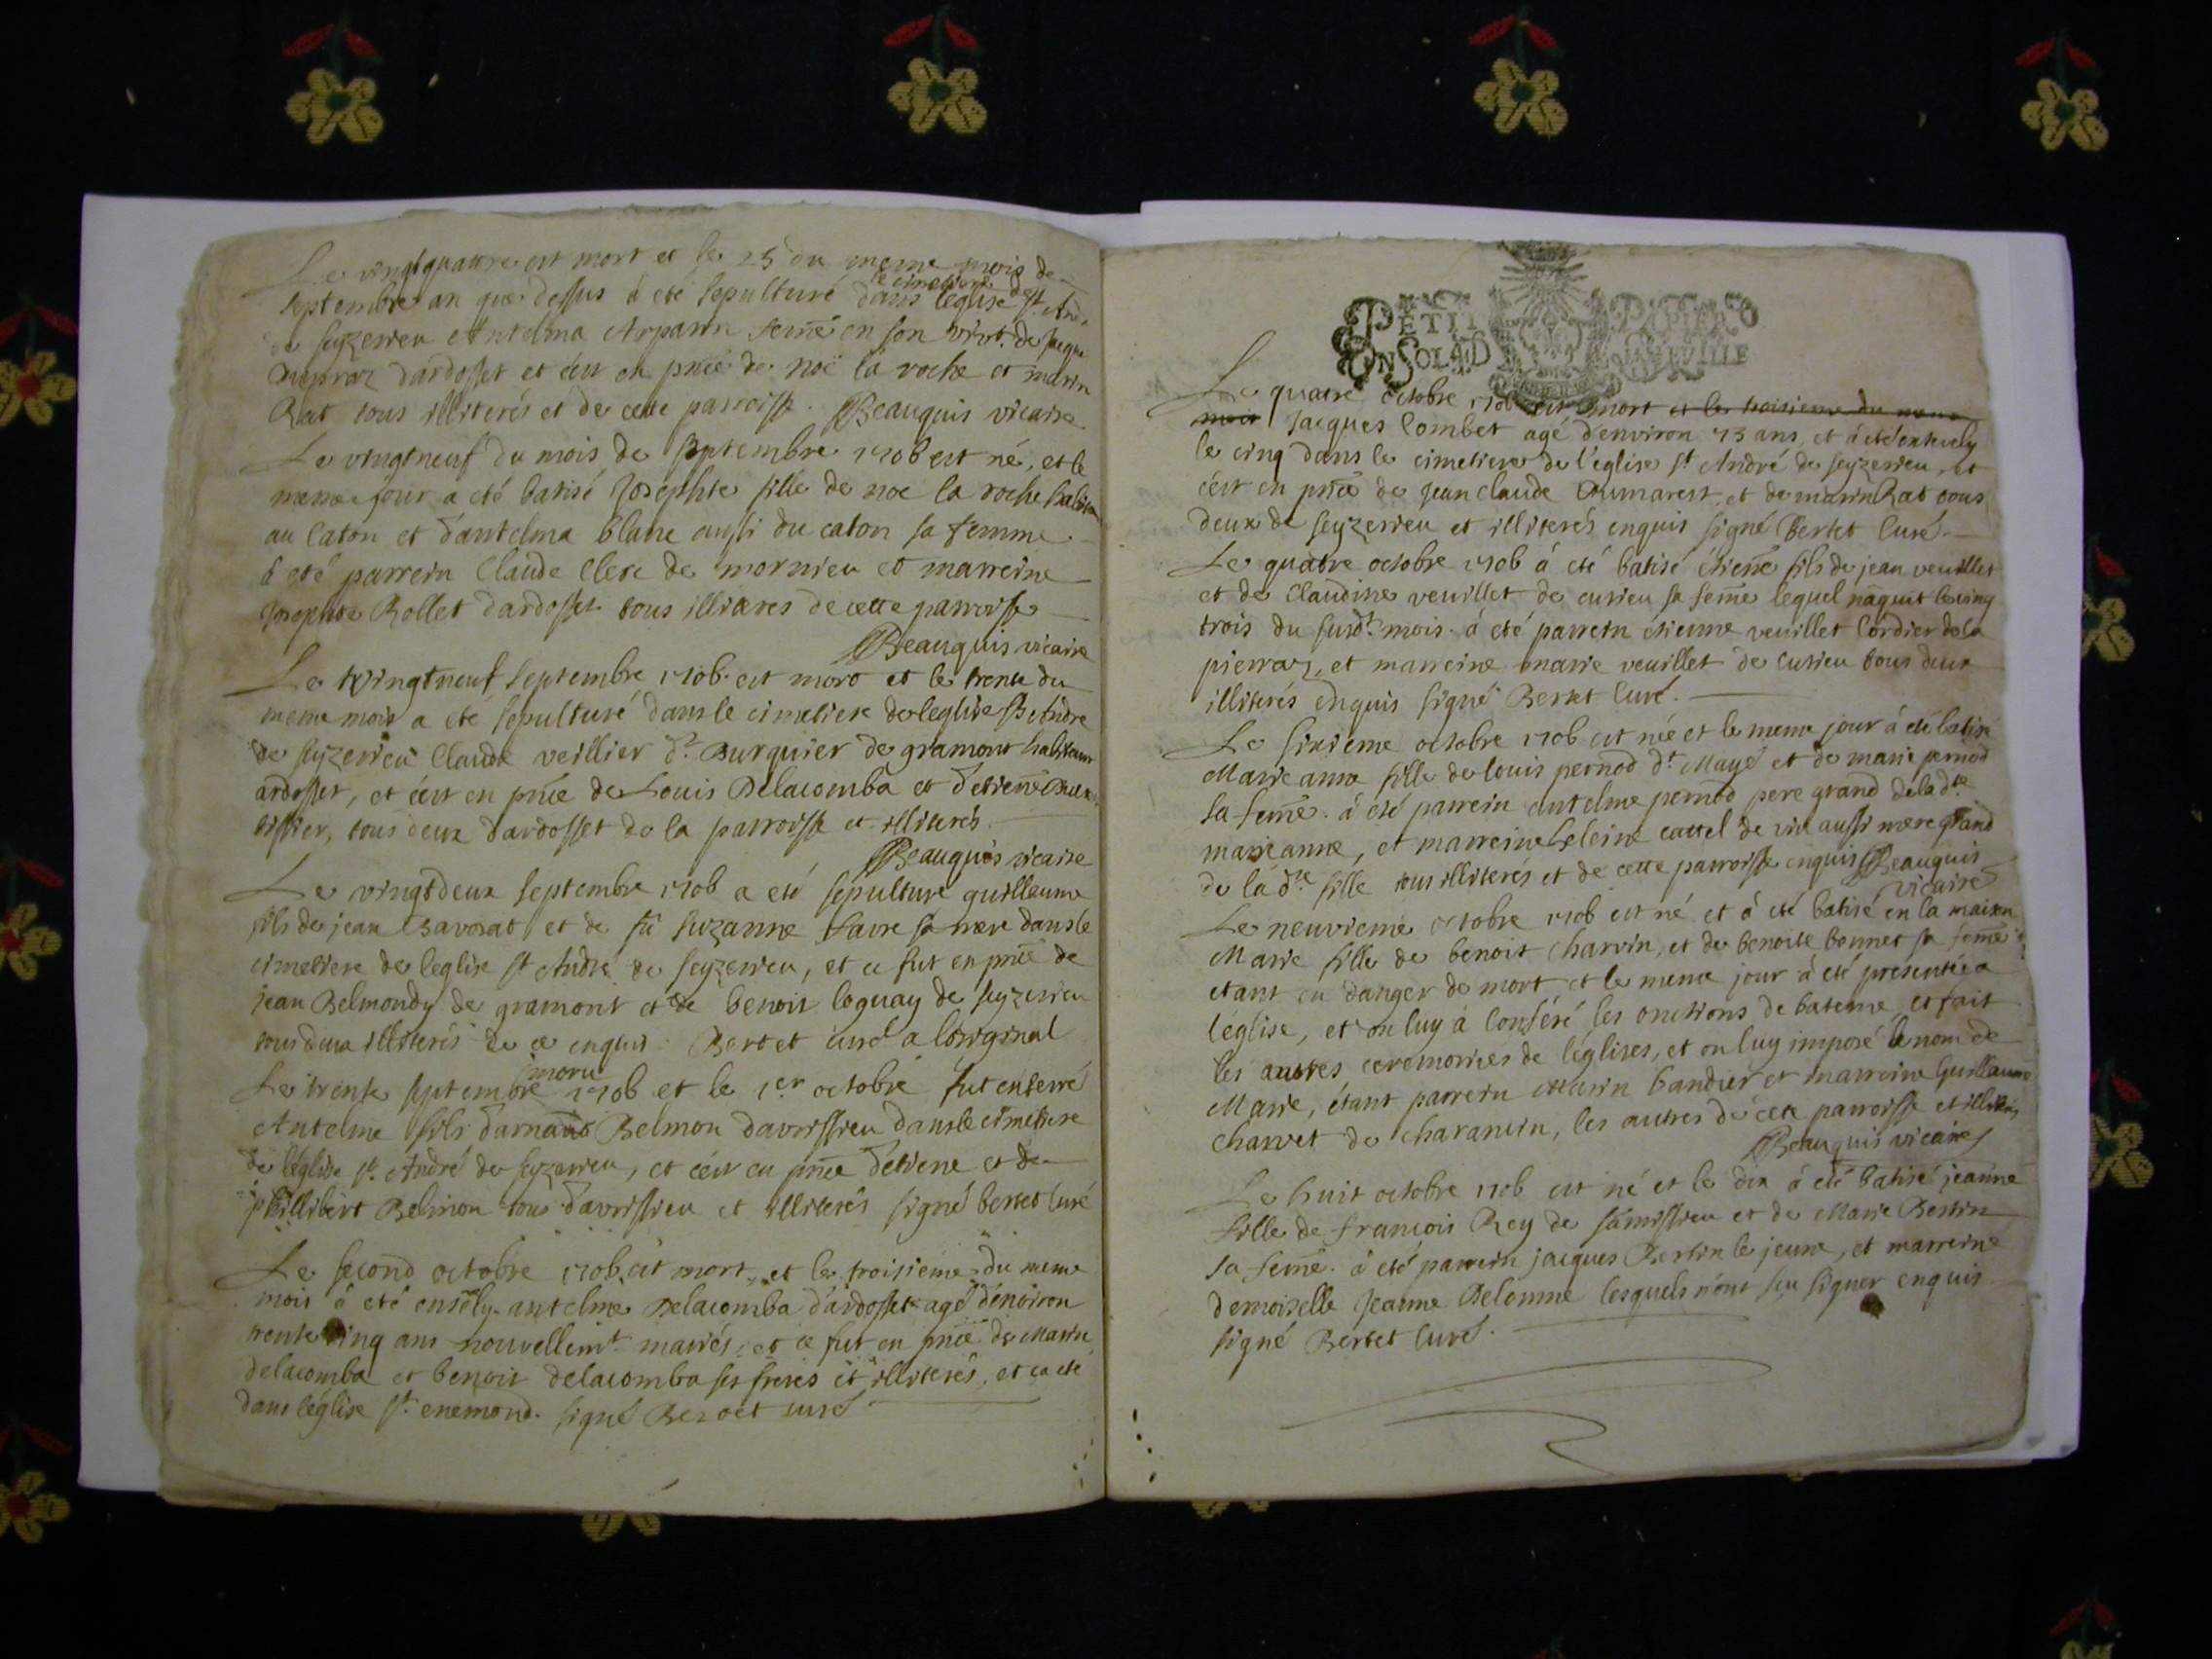 Le vingtquatre est mort et le 25 du meme mois de
septembre an que dessus à eté sepulturé dans le cimetiere de léglise st. And.
de seyzerieu Antelma Arparin femē en son vivt. de Jaque
dardosset et cest en prnce de noë la roche et marin
Rat tous illiterés et de cette parroisse. Beauquis vicaire
Le vingtneuf du mois de septembre 1706 est né, et le
meme jour a eté batisé Josephte fille de noe la roche habitan
au caton et dantelma blanc aussi du caton sa femme
à eté parrein Claude Clerc de mornieu et marreine
Josephte Rollet dardosset tous illiteres de cette parroisse
Beauquis vicaire
Le vingtneuf septembre 1706 est mort et le trente du
meme mois a eté sepulturé dans le cimetiere de leglise st André
de seyzerieu Claude veillier dt. Burquier de gramont habitant
ardosset, et cest en prnce de Louis Delacomba et détienē
tissier, tous deux dardosset de la parroisse et illiterés
Beauquis vicaire
Le vingtdeux septembre 1706 a eté sépulturé guillaume
fils de jean Bavorat et de fû suzanne favre sa mere dans le
cimetiere de leglise st André de seyzerieu, et ce fut en prnce de
jean Belmondy de gramont et de benoit loguay de seyzerieu
tous deux illiterés de ce enquis. Bertet curé a loriginal
Le trente septembre moru 1706 et le 1er octobre fut enterré
Antelme fils darnaud Belmon davrissieu dans le cimetiere
de léglise st. André de seyzerieu, et cest en prnce détiene et de
phillibert Belmon tous davrissieu et illiterés signé bertet curé
Le second octobre 1706 est mort et le troisieme du meme
mois à eté ensely antelme Delacomba dardosset agé dénviron
trente cinq ans nouvellemt. mariés, et ce fut en prnce de Marin
delacomba et benoit delacomba ses freres et illiterés, et ca eté
dans léglise st. enemond. signé Bertet curé
PETIT PAPIER
Le quatre octobre 1706 est mort et le troisieme du meme
mois Jacques Combet agé denviron 73 ans, et à eté ensevely
le cinq dans le cimetiere de l'eglise st André de seyzerieu, et
cest en prnce de Jean claude Dumarest et de marin Rat tous
deux de seyzerieu et illiterés enquis signé Bertet Curé.
Le quatre octobre 1706 à eté batisé étienē fils de jean veuillet
et de Claudine veuillet de curieu sa femē lequel naquit le vingt
trois du susdt. mois. à eté parrein étienne veuillet Cordier de la
pierraz, et marreine marie veuillet de curieu tous deux
illiterés enquis signé Bertet Curé.
Le sixieme octobre 1706 est née et le meme jour à eté batisé
Marie anne fille de louis pernod dt. Mayé et de marie pernod
sa femē. à eté parrein antelme pernod pere grand de la dte
marieanne, et marreine heleine cattel de vin aussi mere grand
de la dte fille tous illiterés et de cette parroisse enquis Beauquis
vicaire
Le neuvieme octobre 1706 est né et à eté batisé en la maison
Marie fille de benoit Charvin, et de benoite bonnet sa femē
etant en danger de mort et le meme jour à eté presentée a
léglise, et on luy à Conféré les onctions de bateme, et fait
les autres ceremonies de léglises, et on luy imposé le nom de
Marie, étant parrein Marin bandier et marreine Guillauma
Charvet de charancin, les autres de cete parroisse et illiterés
Beauquis vicaire
Le huit octobre 1706 est né et le dix à eté batisé jeanne
fille de francois Rey de samissieu et de Marie Bertin
sa femē. à eté parrein jacques Bertin le jeune, et marreine
demoiselle Jeanne Delomme lesquels n'ont seu signer enquis
signé Bertet Curé.